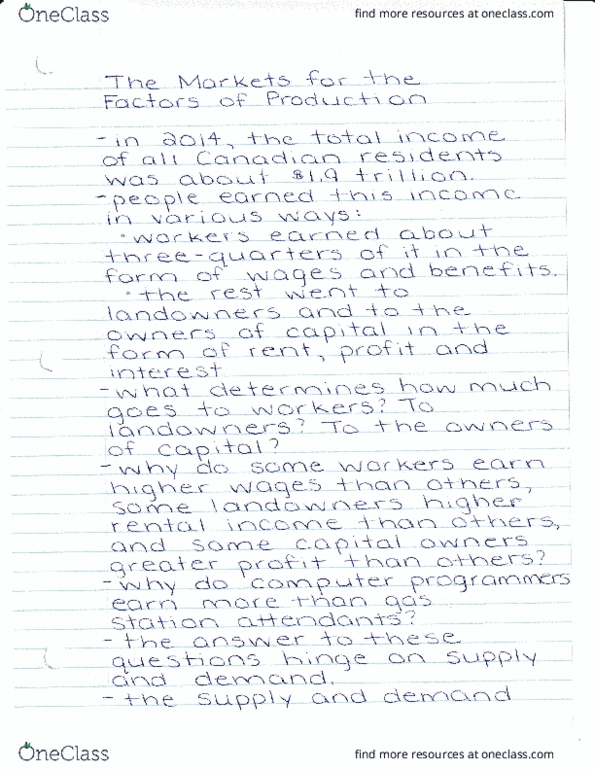 OneClass
find more resources at oneclass.com
The Markets for the
Factors of Production
- in 2014, the total income
of all Canadian residents
was about $1.9 trillion.
- people earned this income
in various ways:
• workers earned about
three-quarters of it in the
form of wages and benefits.
• the rest went to
landowners and to the
owners of capital in the
form of rent, profit and
interest
- what determines how much
goes to workers? To
landowners? To the owners
of capital?
- why do some workers earn
higher wages than others,
some landowners higher
rental income than others,
and some capital owners
greater profit than others?
- why do computer programmers
earn more than gas
station attendants?
- the answer to these
questions hinge on supply
and demand.
- the supply and demand
OneClass
find more resources at oneclass.com